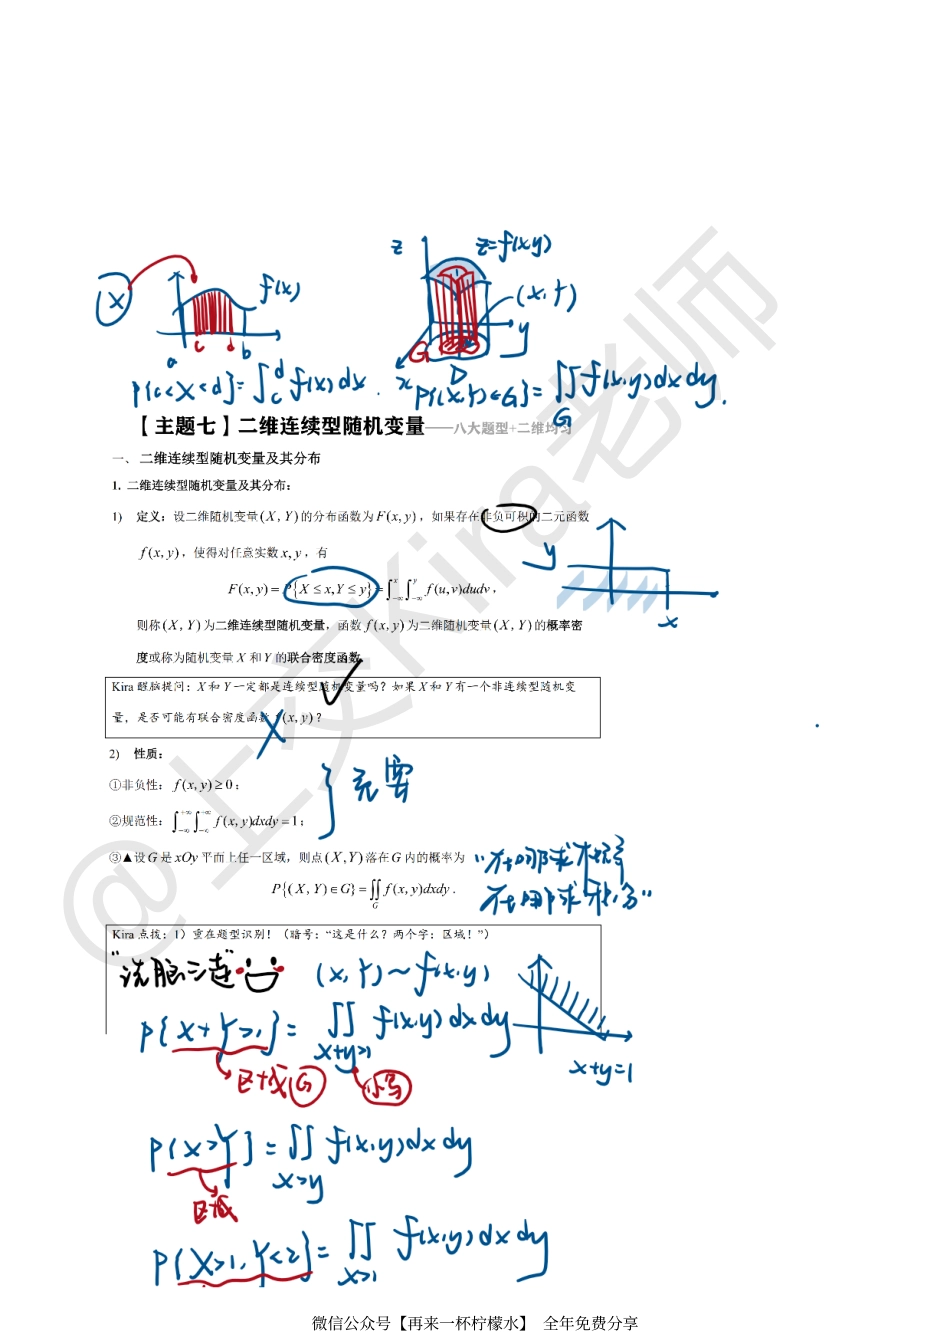 z
z=f(x,y)
X
f(x)
(X,Y)
y
a c d b
G
D
x
P{c<X<d}=∫_c^d f(x)dx.
P{(X,Y)∈G}=∬_G f(x,y)dxdy.
【主题七】二维连续型随机变量——八大题型+二维均匀
一、二维连续型随机变量及其分布
1. 二维连续型随机变量及其分布:
1) 定义:设二维随机变量(X,Y)的分布函数为F(x,y),如果存在非负可积的二元函数
f(x,y),使得对任意实数x,y,有
y
F(x,y)=P{X≤x,Y≤y}=∫_{-∞}^{x}∫_{-∞}^{y} f(u,v)dudv,
x
则称(X,Y)为二维连续型随机变量,函数f(x,y)为二维随机变量(X,Y)的概率密
度或称为随机变量X和Y的联合密度函数
Kira醒脑提问:X和Y一定都是连续型随机变量吗?如果X和Y有一个非连续型随机变
量,是否可能有联合密度函数f(x,y)?
2) 性质:
①非负性:f(x,y)≥0;
充要
②规范性:∫_{-∞}^{+∞}∫_{-∞}^{+∞} f(x,y)dxdy=1;
③▲设G是xOy平面上任一区域,则点(X,Y)落在G内的概率为
"在哪求概率
P{(X,Y)∈G}=∬_G f(x,y)dxdy.
在哪求积分"
Kira点拨:1)重在题型识别!(暗号:“这是什么?两个字:区域!”)
"洗脑三连"
(X,Y)~f(x,y)
P{X+Y>1}=∬_{x+y>1} f(x,y)dxdy
x+y=1
区域G
P{X>Y}=∬_{x>y} f(x,y)dxdy
区域
P{X>1,Y<2}=∬_{x>1} f(x,y)dxdy
@上交Kira老师
微信公众号【再来一杯柠檬水】 全年免费分享